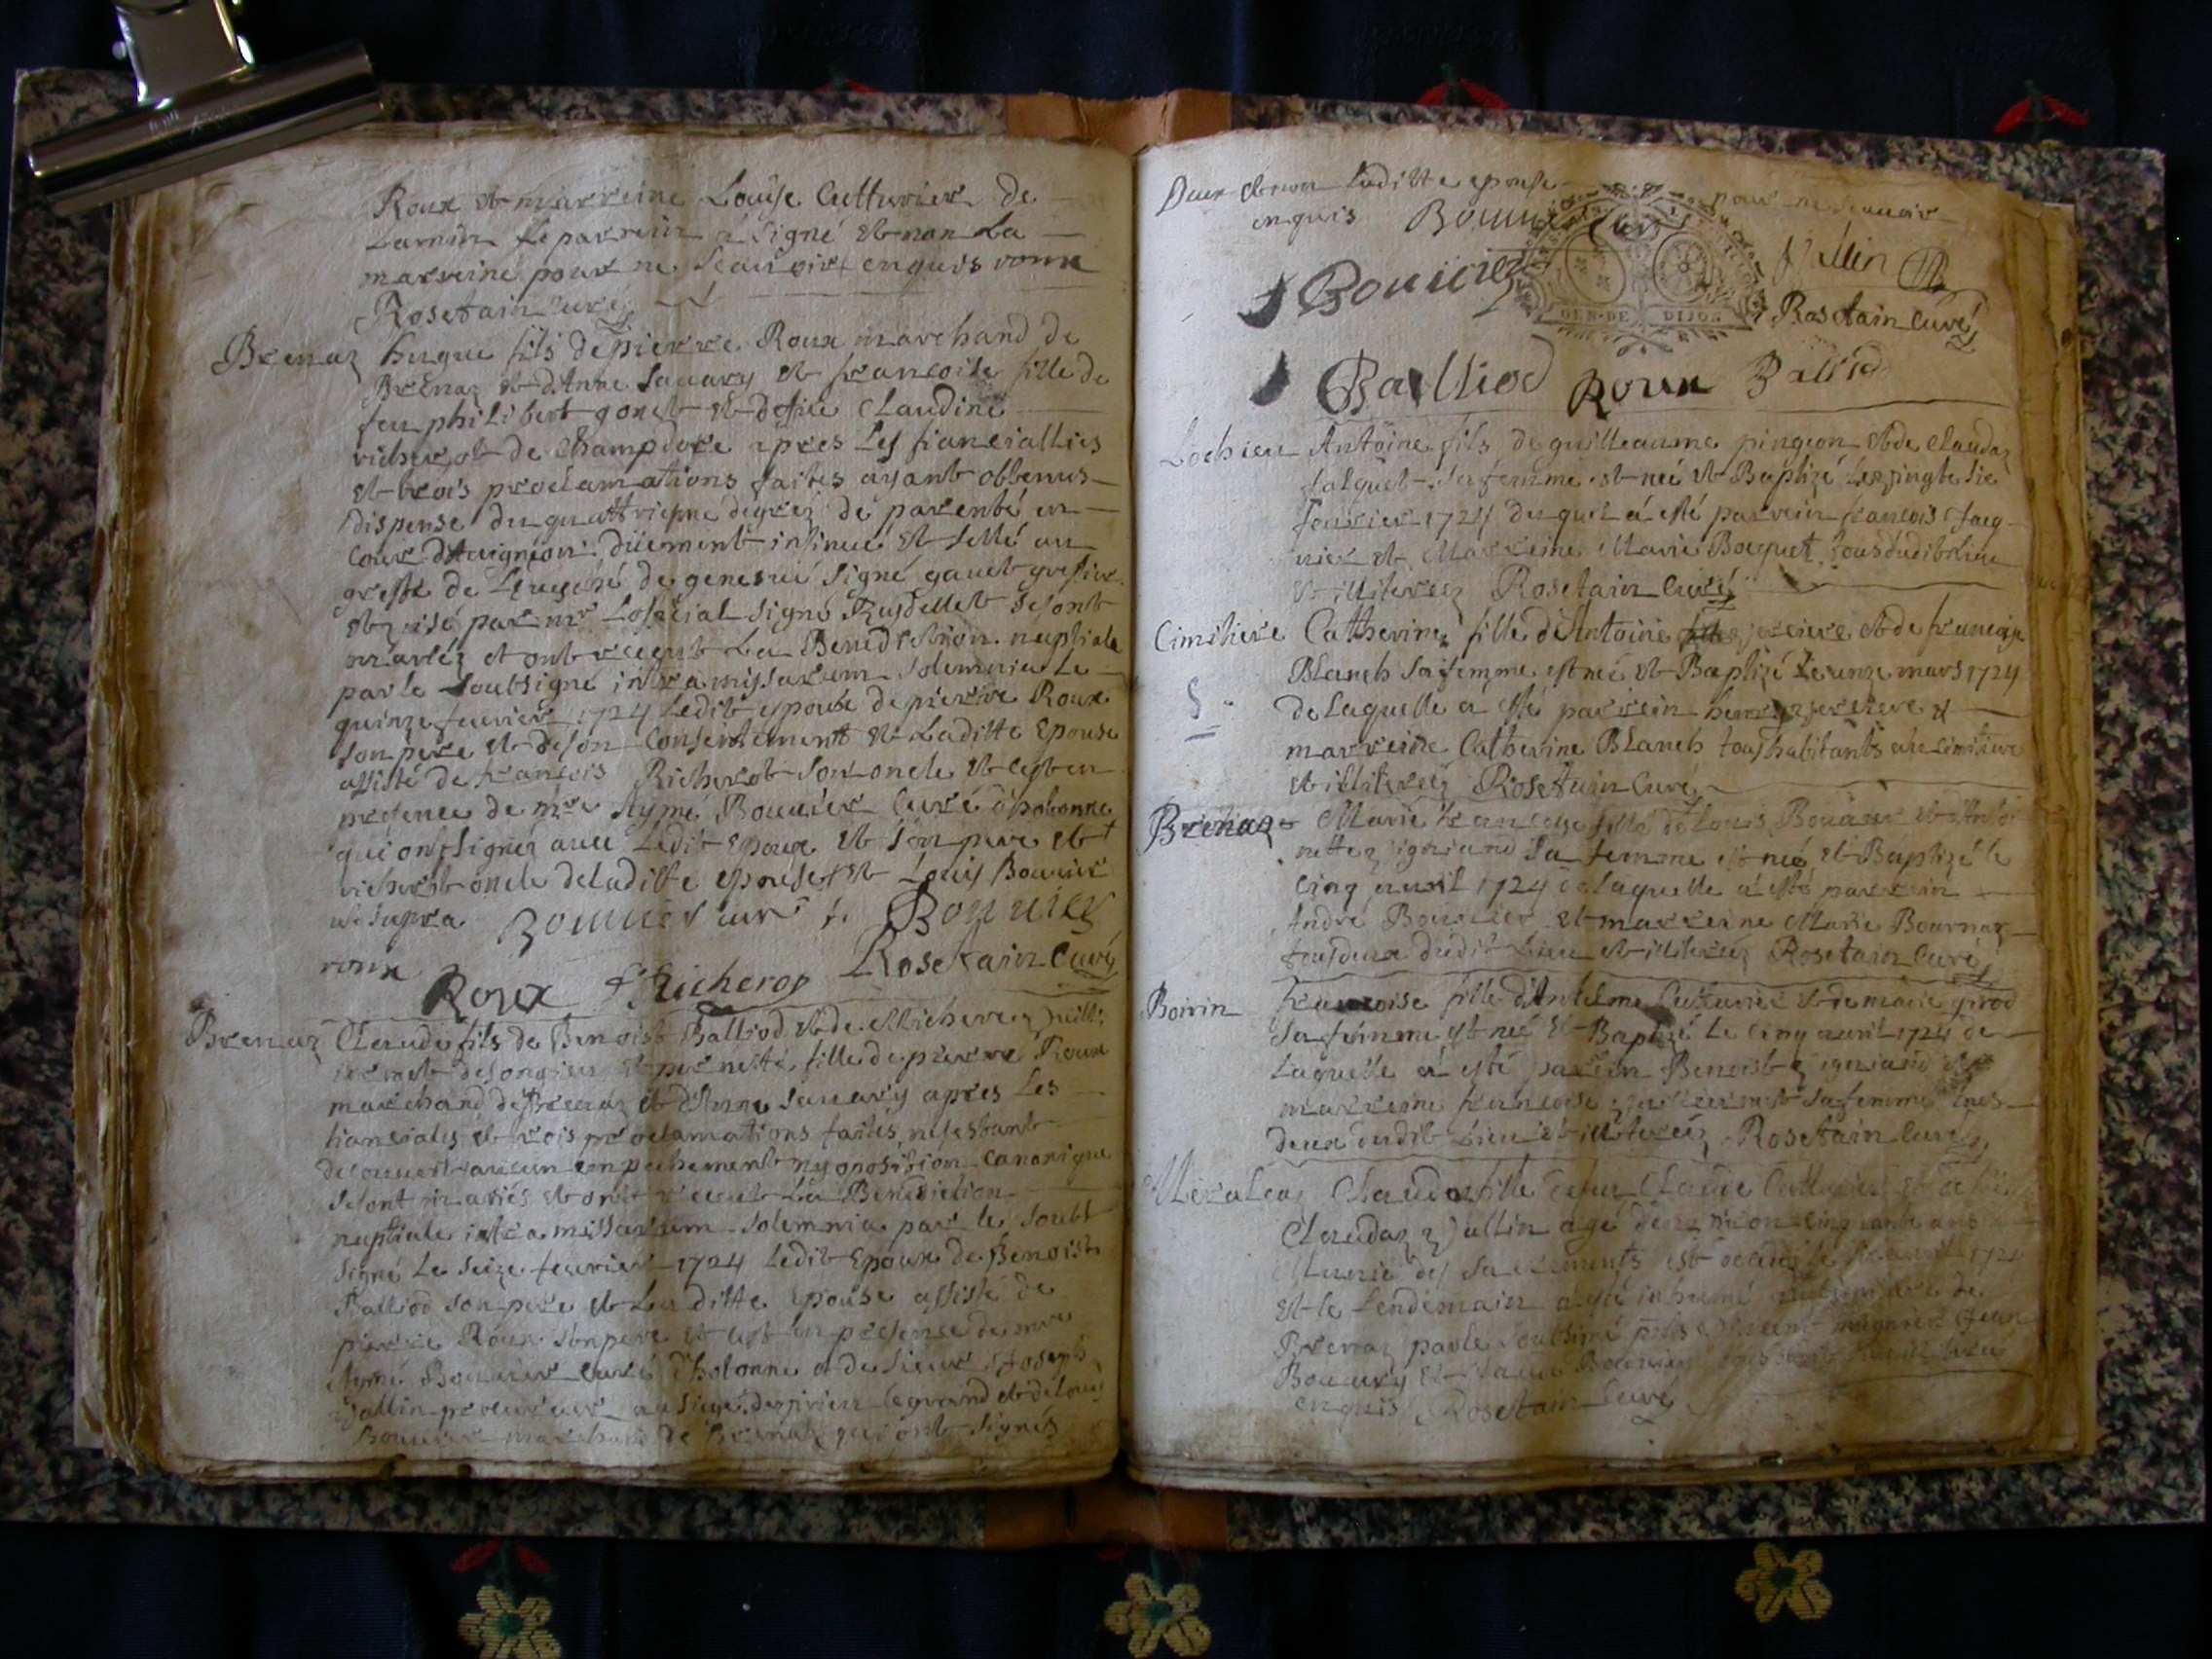 Roux et marreine Louyse Cutturier de
Larnin le parrein à signé et non La
marreine pour ne scauoir enquis roux
Rosetain curé
Brenaz hugue fils de pierre Roux marchand de
Brenaz et d'Anne Sauary et francoise fille de
feu philibert gonet et de feue Claudine
richerot de Champdore apres Les fianciallies
et trois proclamations faites ayant obtenus
dispense du quattrieme degrez de parenté en
Cour d'Auignion düement insinué et sellé au
greffe de L'eueché de geneue signé gauet greffier
et uisé par mr Loficial signé Rusdellet se sont
mariéz et ont receut La Benediction nuptiale
par le soubsigné intra missarum solemnia Le
quinze feurier 1724 Ledit epoux de pierre Roux
son pere et de son Consentement et Laditte Epouse
assisté de francois Richerot son oncle et c'est en
presence de mre Aymé Bouuier Curé d'hotonne
qui ont signéz auec Ledit Epoux et son pere et
richerot oncle de laditte epouse et Louis Bouuier
ut supra. Bouuier cur L. Bouuier
roux Roux F Richerot Rosetain Curé
Brenaz Claude fils de Benoist Balliod et de Micherez
de songieu et pernette fille de pierre Roux
marchand de Brenaz et d'Anne Sauary apres Les
fianciales et trois proclamations faites, ne s'estant
decouuert aucun empechement ny oposition Canonique
se sont mariés et ont receut La Benediction
nuptiale intra missarum solemnia par le soubs
signé Le Seize feurier 1724 Ledit Epoux de Benoist
Balliod son pere et La ditte Epouse assisté de
pierre Roux son pere et c'est en presence de mre
Aymé Bouuier curé d'hotonne et de sieur Joseph
Jallin procureur au siege du prieur legrand et de Louis
Bouuier marchand de Brenaz qui ont signés
Deux et non Laditte epouse pour ne scauoir
enquis Bouuier Curé
Bouuier Jallin
GEN·DE DIJON Rosetain Curé
Bailliod Roux Balliod
Lochieu Antoine fils de guilleaume pingeon et de Claudaz
falquet sa femme est neé et Baptizé Le uingte sie
feurier 1724 duquel a esté parrein francois Jacq
nier et Marreine Marie Boquet tous dudit Lieu
et illiterez Rosetain Curé
Cimitiere Catherine fille d'Antoine jereiere et de francoise
Blanch sa femme est neé et Baptizé Le unze mars 1724
de Laquelle a esté parrein
marreine Catherine Blanch tous habitants au cimitiere
et illiterez Rosetain Curé
Brenaz Marie francoise fille de Louis Bouuier et d'Antoi
nette signiand sa femme est neé et Baptizé le
Cinq auril 1724 de laquelle a esté parrein
André Bouuier et marreine Marie Bournaz
tous deux dudit Lieu et illiterez Rosetain Curé
Boirin francoise fille d'Antelme Cutturier et de marie girod
sa femme est neé et Baptizé Le Cinq auril 1724 de
Laquelle a esté parrein Benoist signiand et
marreine francoise sa femme tous
deux dudit Lieu et illiterez Rosetain Curé
Claudaz fille de feu Claude Cutturier et de
Claudaz Jullin agé d'enuiron cinquante ans
Munie des sacrements est decedé le six auril 1724
et le Lendemain a esté inhumé au cimitiere de
Brenaz par le soubsigné
Bouuery et Bouuier
enquis Rosetain Curé